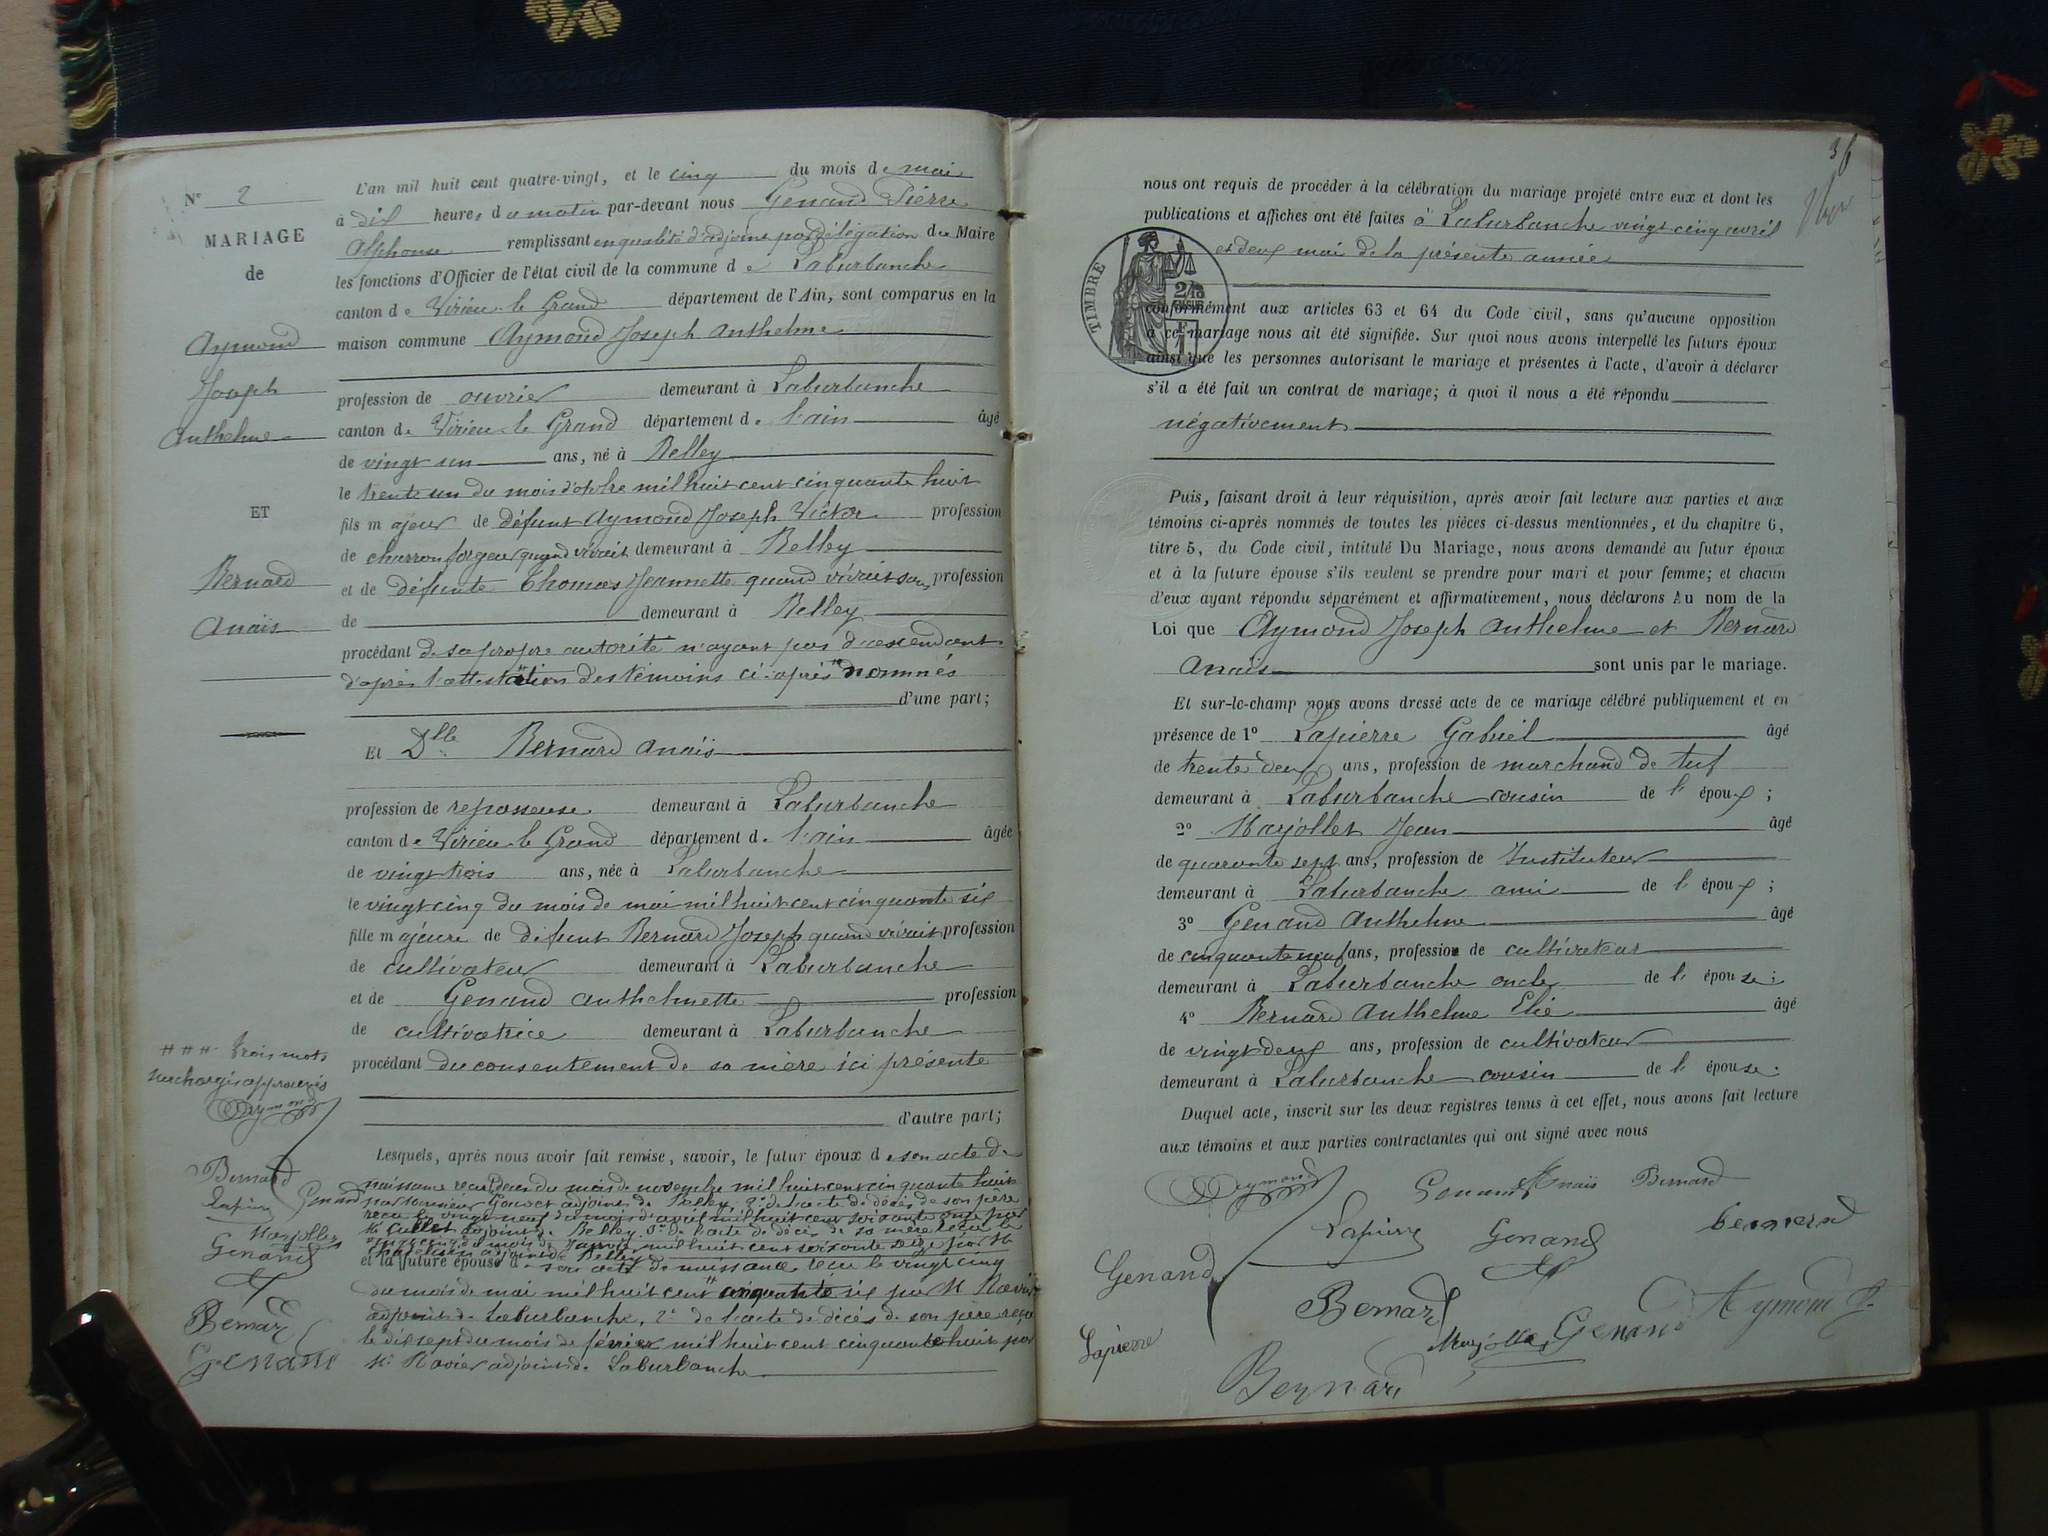 N° 2
MARIAGE
de
Aymond
Joseph
Anthelme
ET
Bernard
Anaïs
# # # trois mots
surchargés approuvés
Aymond
Bernard
Lapierre Genand
Marjollet
Genand
Bernard
Genand
L'an mil huit cent quatre-vingt, et le cinq du mois de mai
à dix heures du matin par-devant nous Genand Pierre
Alphonse remplissant en qualité d'adjoint par délégation du Maire
les fonctions d'Officier de l'état civil de la commune de Laburbanche
canton de Virieu-le-Grand département de l'Ain, sont comparus en la
maison commune Aymond Joseph Anthelme
profession de ouvrier demeurant à Laburbanche
canton de Virieu-le-Grand département de l'ain âgé
de vingt un ans, né à Belley
le trente un du mois d'octobre mil huit cent cinquante huit
fils majeur de défunt Aymond Joseph Victor profession
de charron forgeur quand vivait demeurant à Belley
et de défunte Thomas Jeannette quand vivait sans profession
de demeurant à Belley
procédant de sa propre autorité n'ayant pas d'ascendant
d'après l'attestation des témoins ci-après nommés
d'une part;
Et Dlle Bernard Anaïs
profession de repasseuse demeurant à Laburbanche
canton de Virieu-le-Grand département de l'ain âgée
de vingt trois ans, née à Laburbanche
le vingt cinq du mois de mai mil huit cent cinquante six
fille majeure de défunt Bernard Joseph quand vivait profession
de cultivateur demeurant à Laburbanche
et de Genand Anthelmette profession
de cultivatrice demeurant à Laburbanche
procédant du consentement de sa mère ici présente
d'autre part;
Lesquels, après nous avoir fait remise, savoir, le futur époux de son acte de
naissance reçu deux du mois de novembre mil huit cent cinquante huit
par monsieur Gonvet adjoint de Belley, 2° de l'acte de décès de son père
reçu le vingt neuf du mois d'avril mil huit cent soixante onze par
M. Cullet adjoint de Belley 3° de l'acte de décès de sa mère reçu le
vingt cinq du mois de janvier mil huit cent soixante seize par M.
adjoint de Belley
et la future épouse de son acte de naissance reçu le vingt cinq
du mois de mai mil huit cent cinquante six par M. Ravier
adjoint de Laburbanche, 2° de l'acte de décès de son père reçu
le dix sept du mois de février mil huit cent cinquante huit par
M. Ravier adjoint de Laburbanche
36
nous ont requis de procéder à la célébration du mariage projeté entre eux et dont les
publications et affiches ont été faites à Laburbanche vingt cinq avril
et deux mai de la présente année
TIMBRE
conformément aux articles 63 et 64 du Code civil, sans qu'aucune opposition
à ce mariage nous ait été signifiée. Sur quoi nous avons interpellé les futurs époux
ainsi que les personnes autorisant le mariage et présentes à l'acte, d'avoir à déclarer
s'il a été fait un contrat de mariage; à quoi il nous a été répondu
négativement
Puis, faisant droit à leur réquisition, après avoir fait lecture aux parties et aux
témoins ci-après nommés de toutes les pièces ci-dessus mentionnées, et du chapitre 6,
titre 5, du Code civil, intitulé Du Mariage, nous avons demandé au futur époux
et à la future épouse s'ils veulent se prendre pour mari et pour femme; et chacun
d'eux ayant répondu séparément et affirmativement, nous déclarons Au nom de la
Loi que Aymond Joseph Anthelme et Bernard
Anaïs sont unis par le mariage.
Et sur-le-champ nous avons dressé acte de ce mariage célébré publiquement et en
présence de 1° Lapierre Gabriel âgé
de trente deux ans, profession de marchand de tuf
demeurant à Laburbanche cousin de l'époux;
2° Marjollet Jean âgé
de quarante sept ans, profession de Instituteur
demeurant à Laburbanche ami de l'époux;
3° Genand Anthelme âgé
de cinquante neuf ans, profession de cultivateur
demeurant à Laburbanche oncle de l'épouse;
4° Bernard Anthelme Elie âgé
de vingt deux ans, profession de cultivateur
demeurant à Laburbanche cousin de l'épouse.
Duquel acte, inscrit sur les deux registres tenus à cet effet, nous avons fait lecture
aux témoins et aux parties contractantes qui ont signé avec nous
Aymond Genand Anaïs Bernard
Lapierre Genand bernard
Genand
Bernard Aymond
Marjollet Genand
Lapierre
Bernard